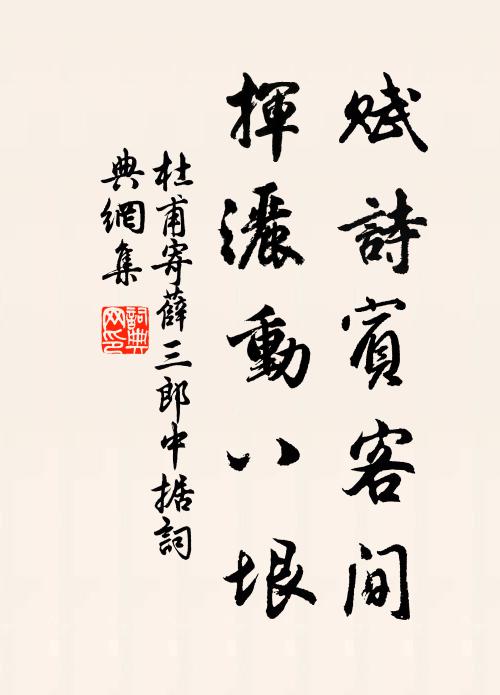 賦詩賓客間
揮灑動八垠
杜甫寄薛三郎中据詞
典網集
詞典
网印